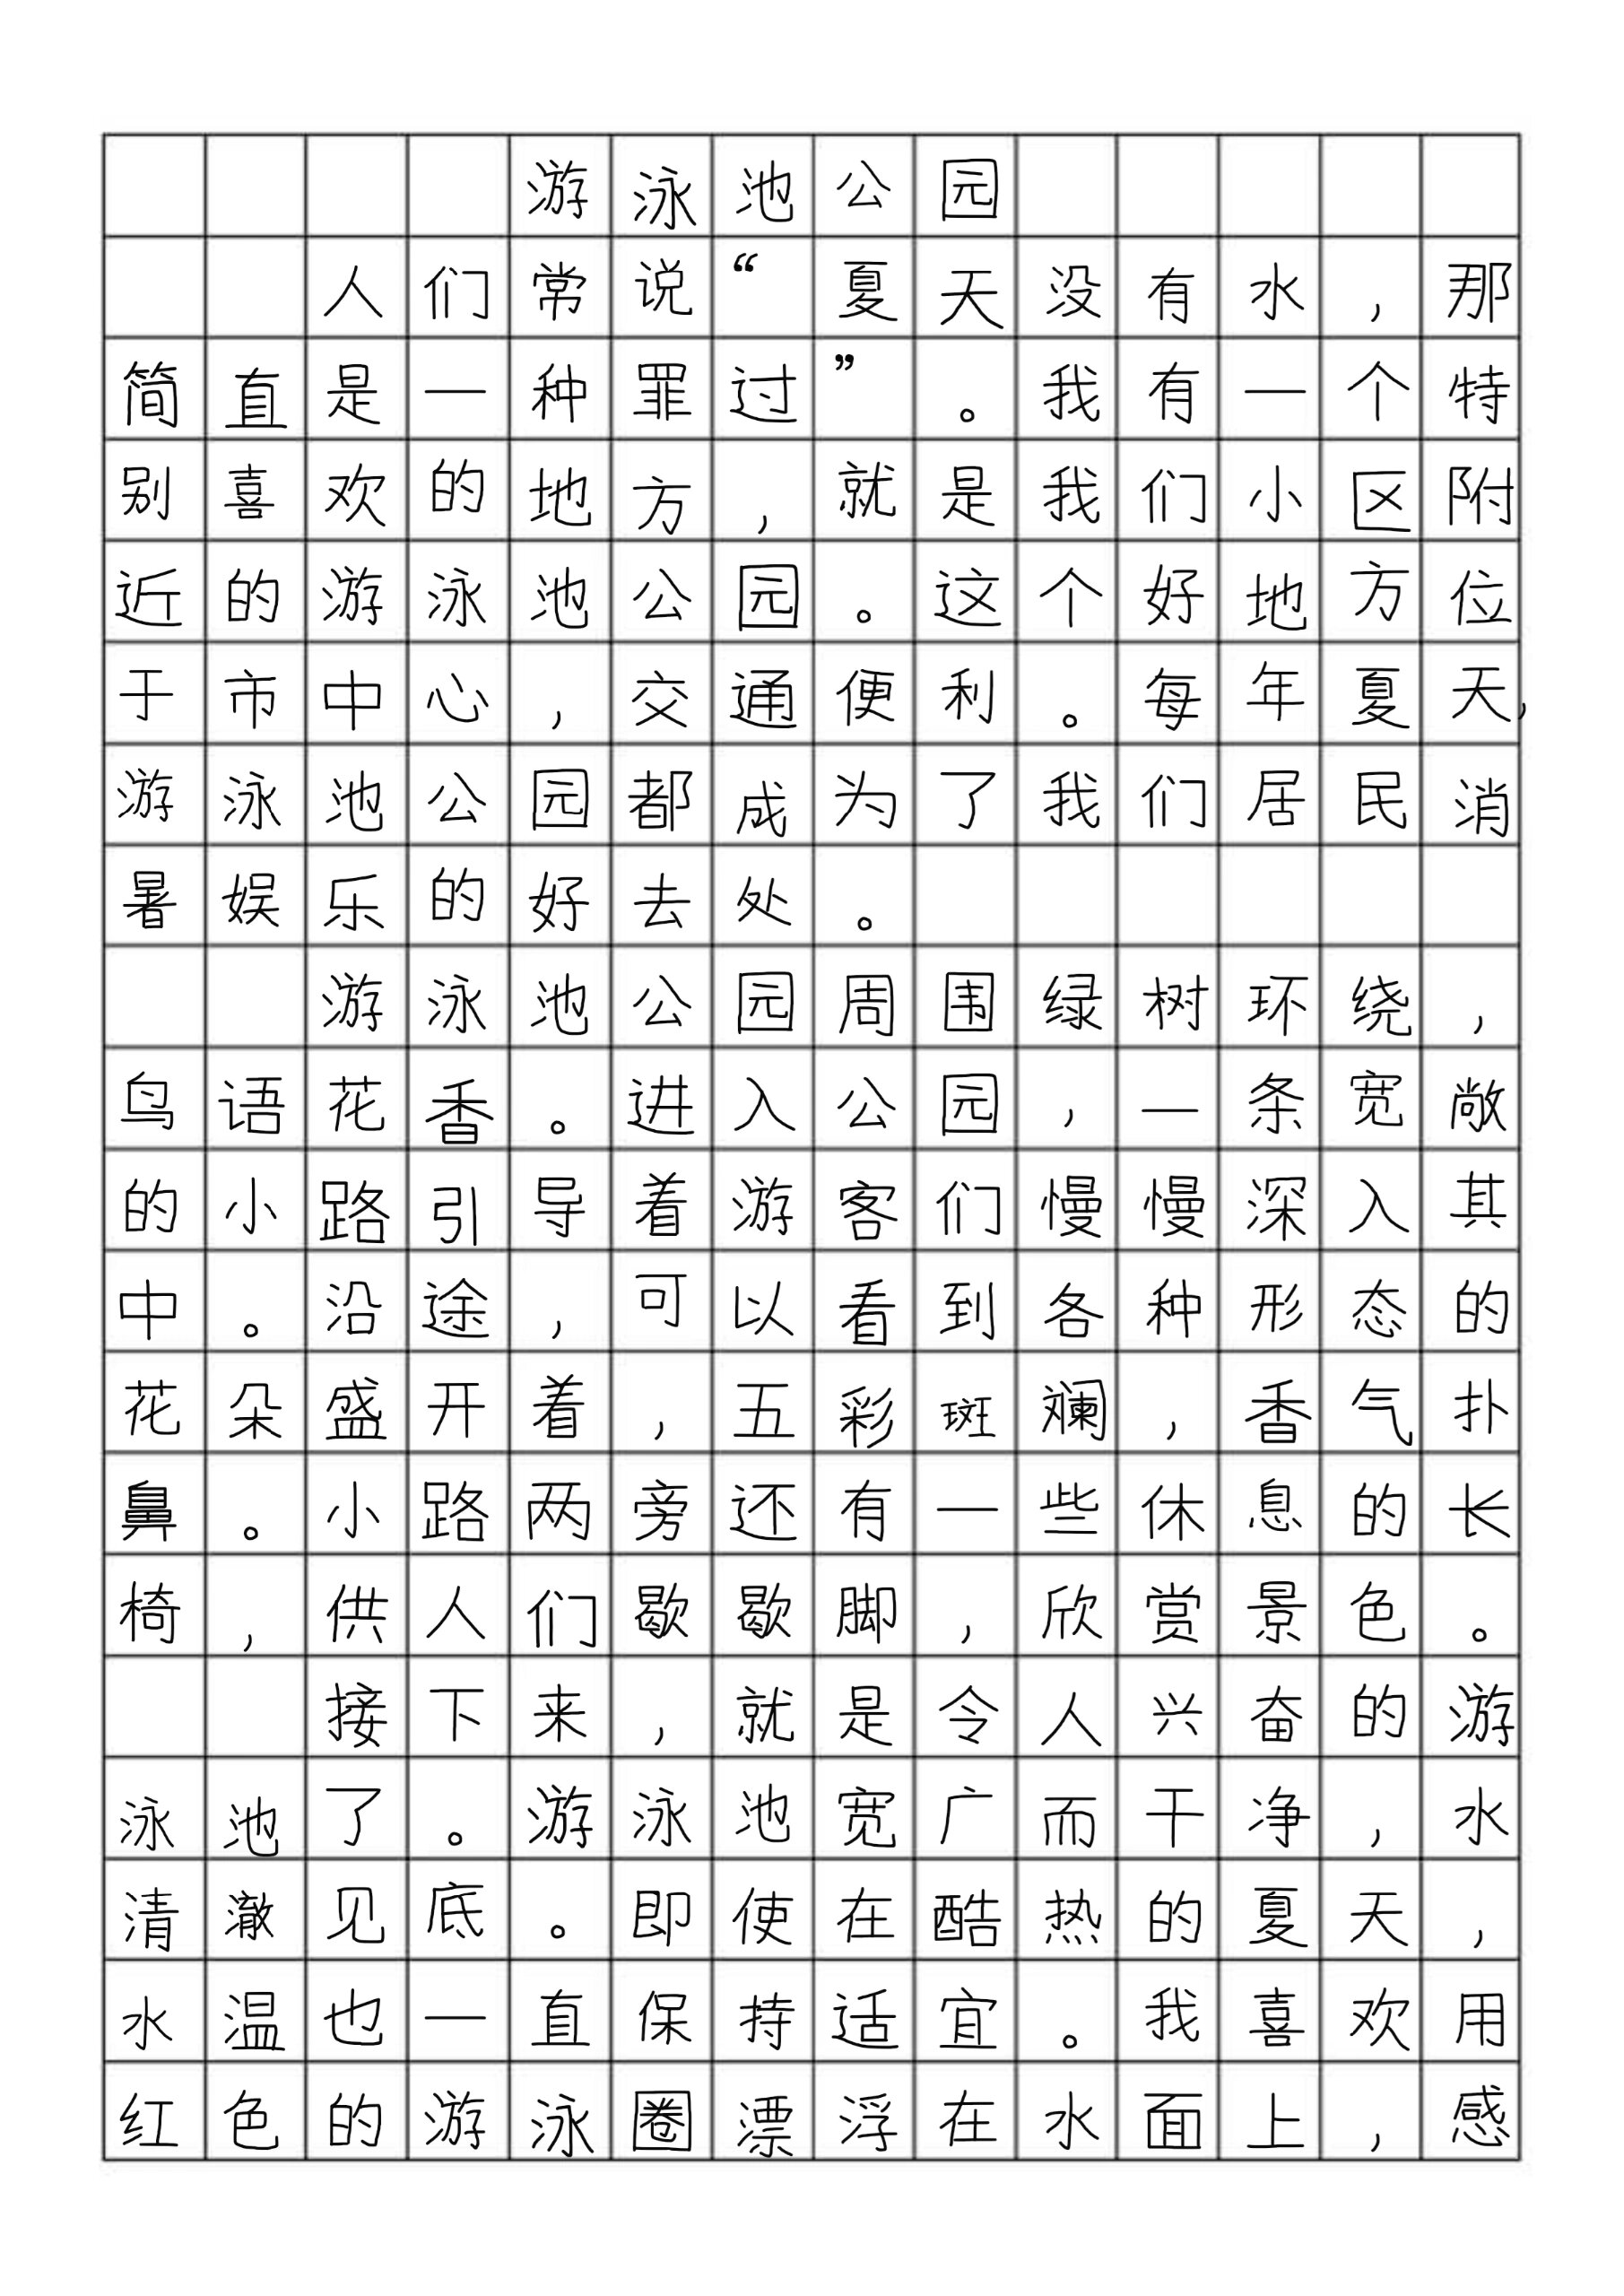 游泳池公园
人们常说“夏天没有水，那
简直是一种罪过”。我有一个特
别喜欢的地方，就是我们小区附
近的游泳池公园。这个好地方位
于市中心，交通便利。每年夏天，
游泳池公园都成为了我们居民消
暑娱乐的好去处。
游泳池公园周围绿树环绕，
鸟语花香。进入公园，一条宽敞
的小路引导着游客们慢慢深入其
中。沿途，可以看到各种形态的
花朵盛开着，五彩斑斓，香气扑
鼻。小路两旁还有一些休息的长
椅，供人们歇歇脚，欣赏景色。
接下来，就是令人兴奋的游
泳池了。游泳池宽广而干净，水
清澈见底。即使在酷热的夏天，
水温也一直保持适宜。我喜欢用
红色的游泳圈漂浮在水面上，感